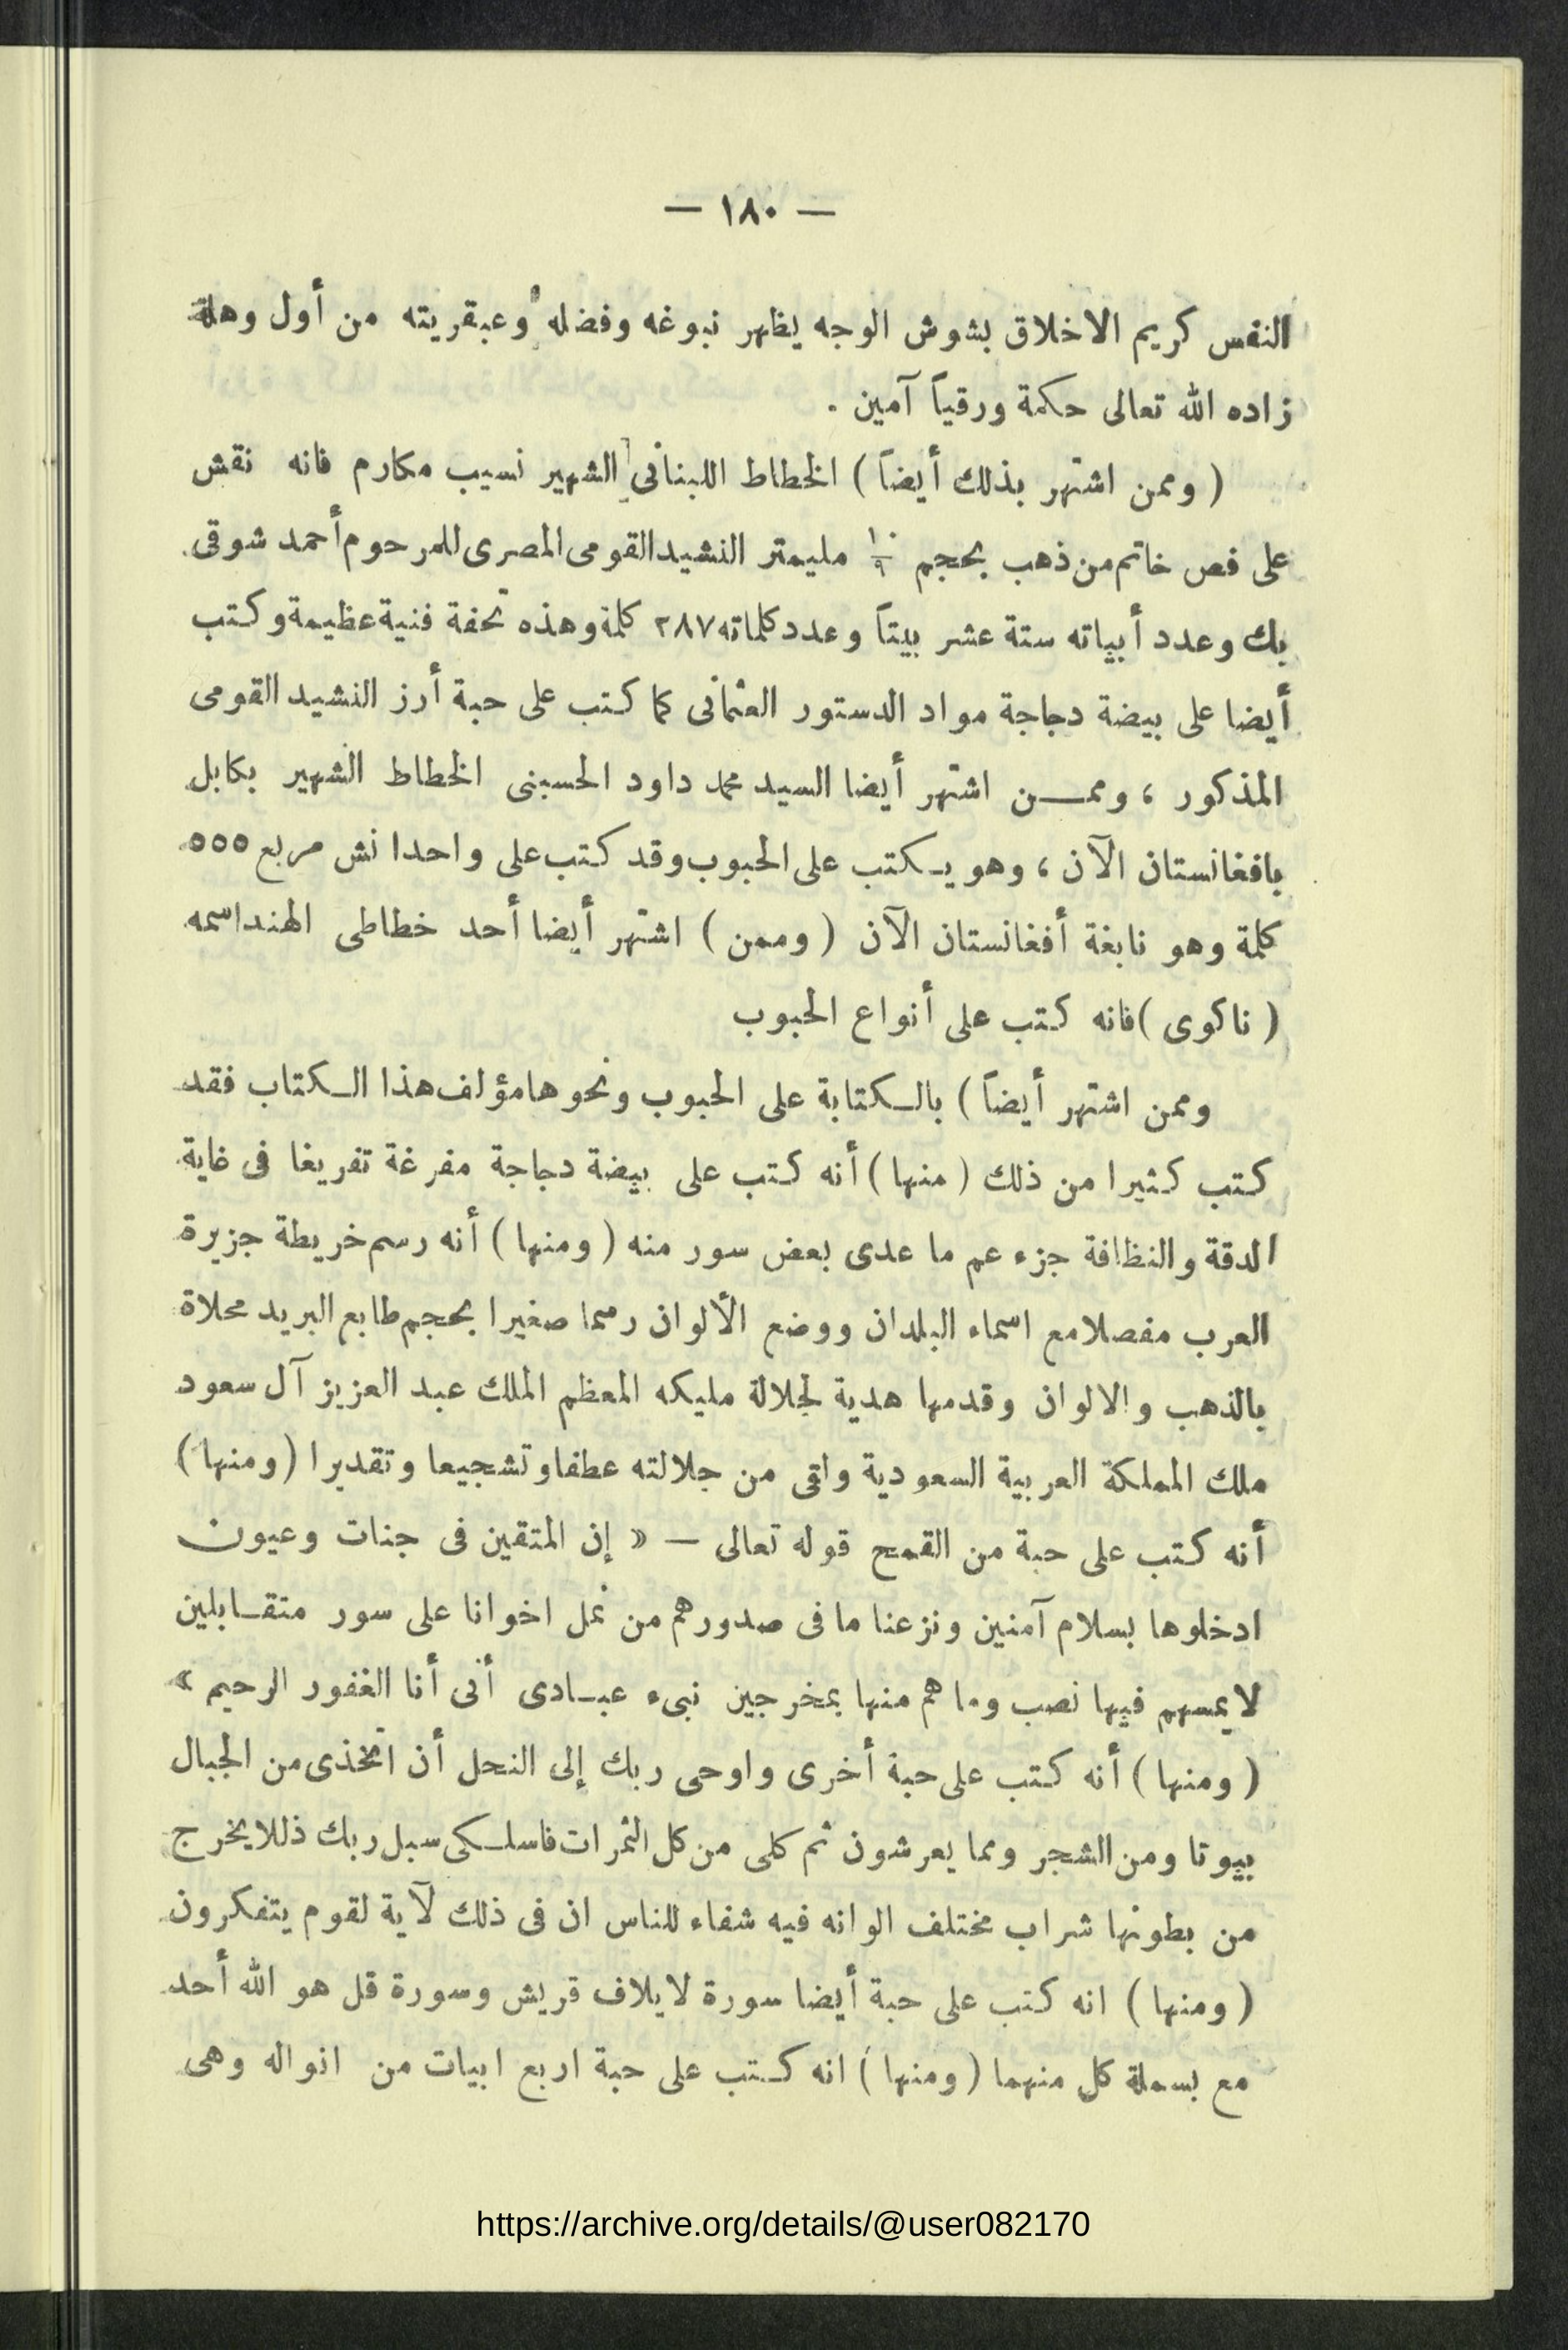 — ١٨٠ —
النفس كريم الاخلاق بشوش الوجه يظهر نبوغه وفضله وعبقريته من أول وهلة
زاده الله تعالى حكمة ورقياً آمين .
( وممن اشتهر بذلك أيضاً ) الخطاط اللبنانى الشهير نسيب مكارم فانه نقش
على فص خاتم من ذهب بحجم مليمتر النشيد القومى المصرى للمرحوم أحمد شوقى
بك وعدد أبياته ستة عشر بيتاً وعدد كلماته ٢٨٧ كلمة وهذه تحفة فنية عظيمة وكتب
أيضا على بيضة دجاجة مواد الدستور العثمانى كما كتب على حبة أرز النشيد القومى
المذكور ، وممـــن اشتهر أيضا السيد محمد داود الحسينى الخطاط الشهير بكابل
بافغانستان الآن ، وهو يـكتب على الحبوب وقد كتب على واحد انش مربع ٥٥٥
كلمة وهو نابغة أفغانستان الآن ( وممن ) اشتهر أيضا أحد خطاطى الهند اسمه
( ناكوى ) فانه كتب على أنواع الحبوب
وممن اشتهر أيضاً ) بالـكتابة على الحبوب ونحوها مؤلف هذا الـكتاب فقد
كتب كثيرا من ذلك ( منها ) أنه كتب على بيضة دجاجة مفرغة تفريغا فى غاية
الدقة والنظافة جزء عم ما عدى بعض سور منه ( ومنها ) أنه رسم خريطة جزيرة
العرب مفصلا مع اسماء البلدان ووضع الألوان رسما صغيرا بحجم طابع البريد محلاة
بالذهب والالوان وقدمها هدية لجلالة مليكه المعظم الملك عبد العزيز آل سعود
ملك المملكة العربية السعودية ولقى من جلالته عطفا وتشجيعا وتقديرا ( ومنها )
أنه كتب على حبة من القمح قوله تعالى — « إن المتقين فى جنات وعيون
ادخلوها بسلام آمنين ونزعنا ما فى صدورهم من غل اخوانا على سور متقـابلين
لا يمسهم فيها نصب وما هم منها بمخرجين نبىء عبـادى أنى أنا الغفور الرحيم »
( ومنها ) أنه كتب على حبة أخرى واوحى ربك إلى النحل أن اتخذى من الجبال
بيوتا ومن الشجر ومما يعرشون ثم كلى من كل الثمرات فاسلـكى سبل ربك ذللا يخرج
من بطونها شراب مختلف الوانه فيه شفاء للناس ان فى ذلك لآية لقوم يتفكرون
( ومنها ) انه كتب على حبة أيضا سورة لايلاف قريش وسورة قل هو الله أحد
مع بسملة كل منهما ( ومنها ) انه كـتب على حبة اربع ابيات من انواله وهى
https://archive.org/details/@user082170